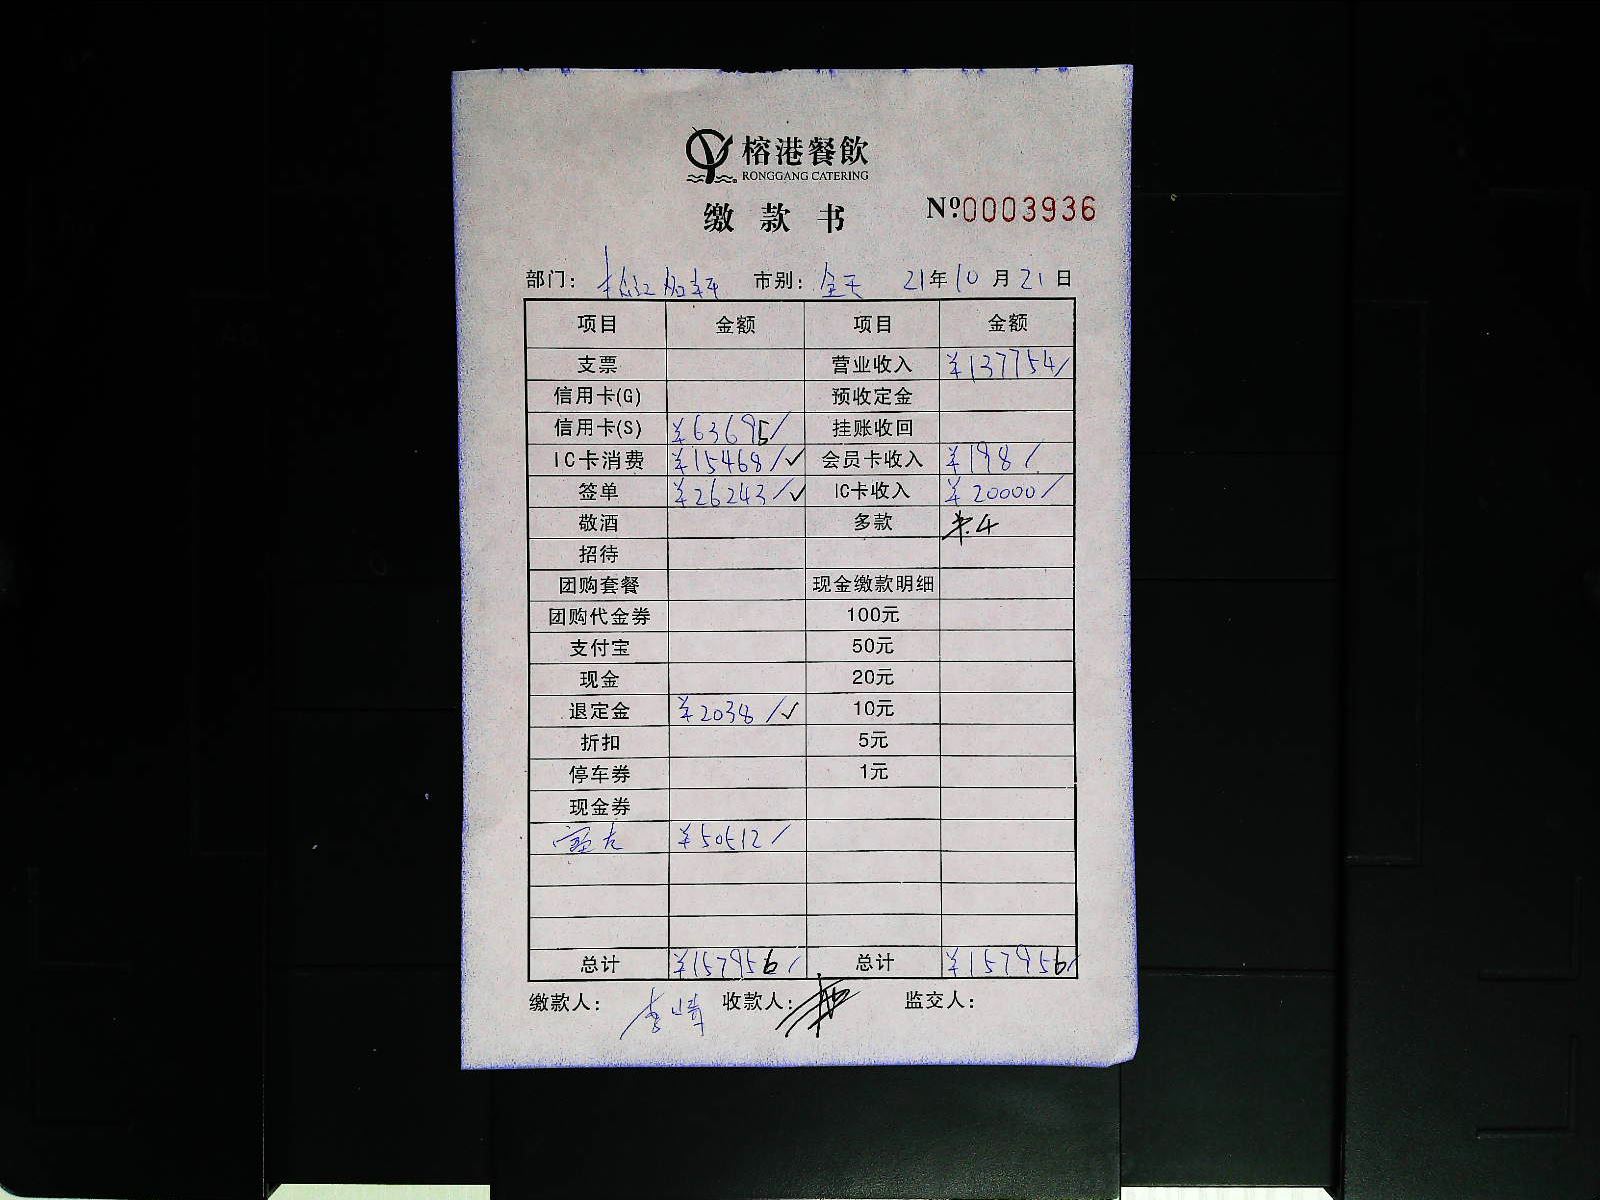 榕港餐飲
RONGGANG CATERING
缴款书 Nº:0003936
部门: 市别: 全天 21年10月21日
项目 金额 项目 金额
支票 营业收入 ¥137754/
信用卡(G) 预收定金
信用卡(S) ¥63695/ 挂账收回
IC卡消费 ¥15468/✓ 会员卡收入 ¥198/
签单 ¥26243/✓ IC卡收入 ¥20000/
敬酒 多款 ¥.4
招待
团购套餐 现金缴款明细
团购代金券 100元
支付宝 50元
现金 20元
退定金 ¥2038/✓ 10元
折扣 5元
停车券 1元
现金券
¥50512/
总计 ¥157956/ 总计 ¥157956/
缴款人: 李崎 收款人: 监交人: